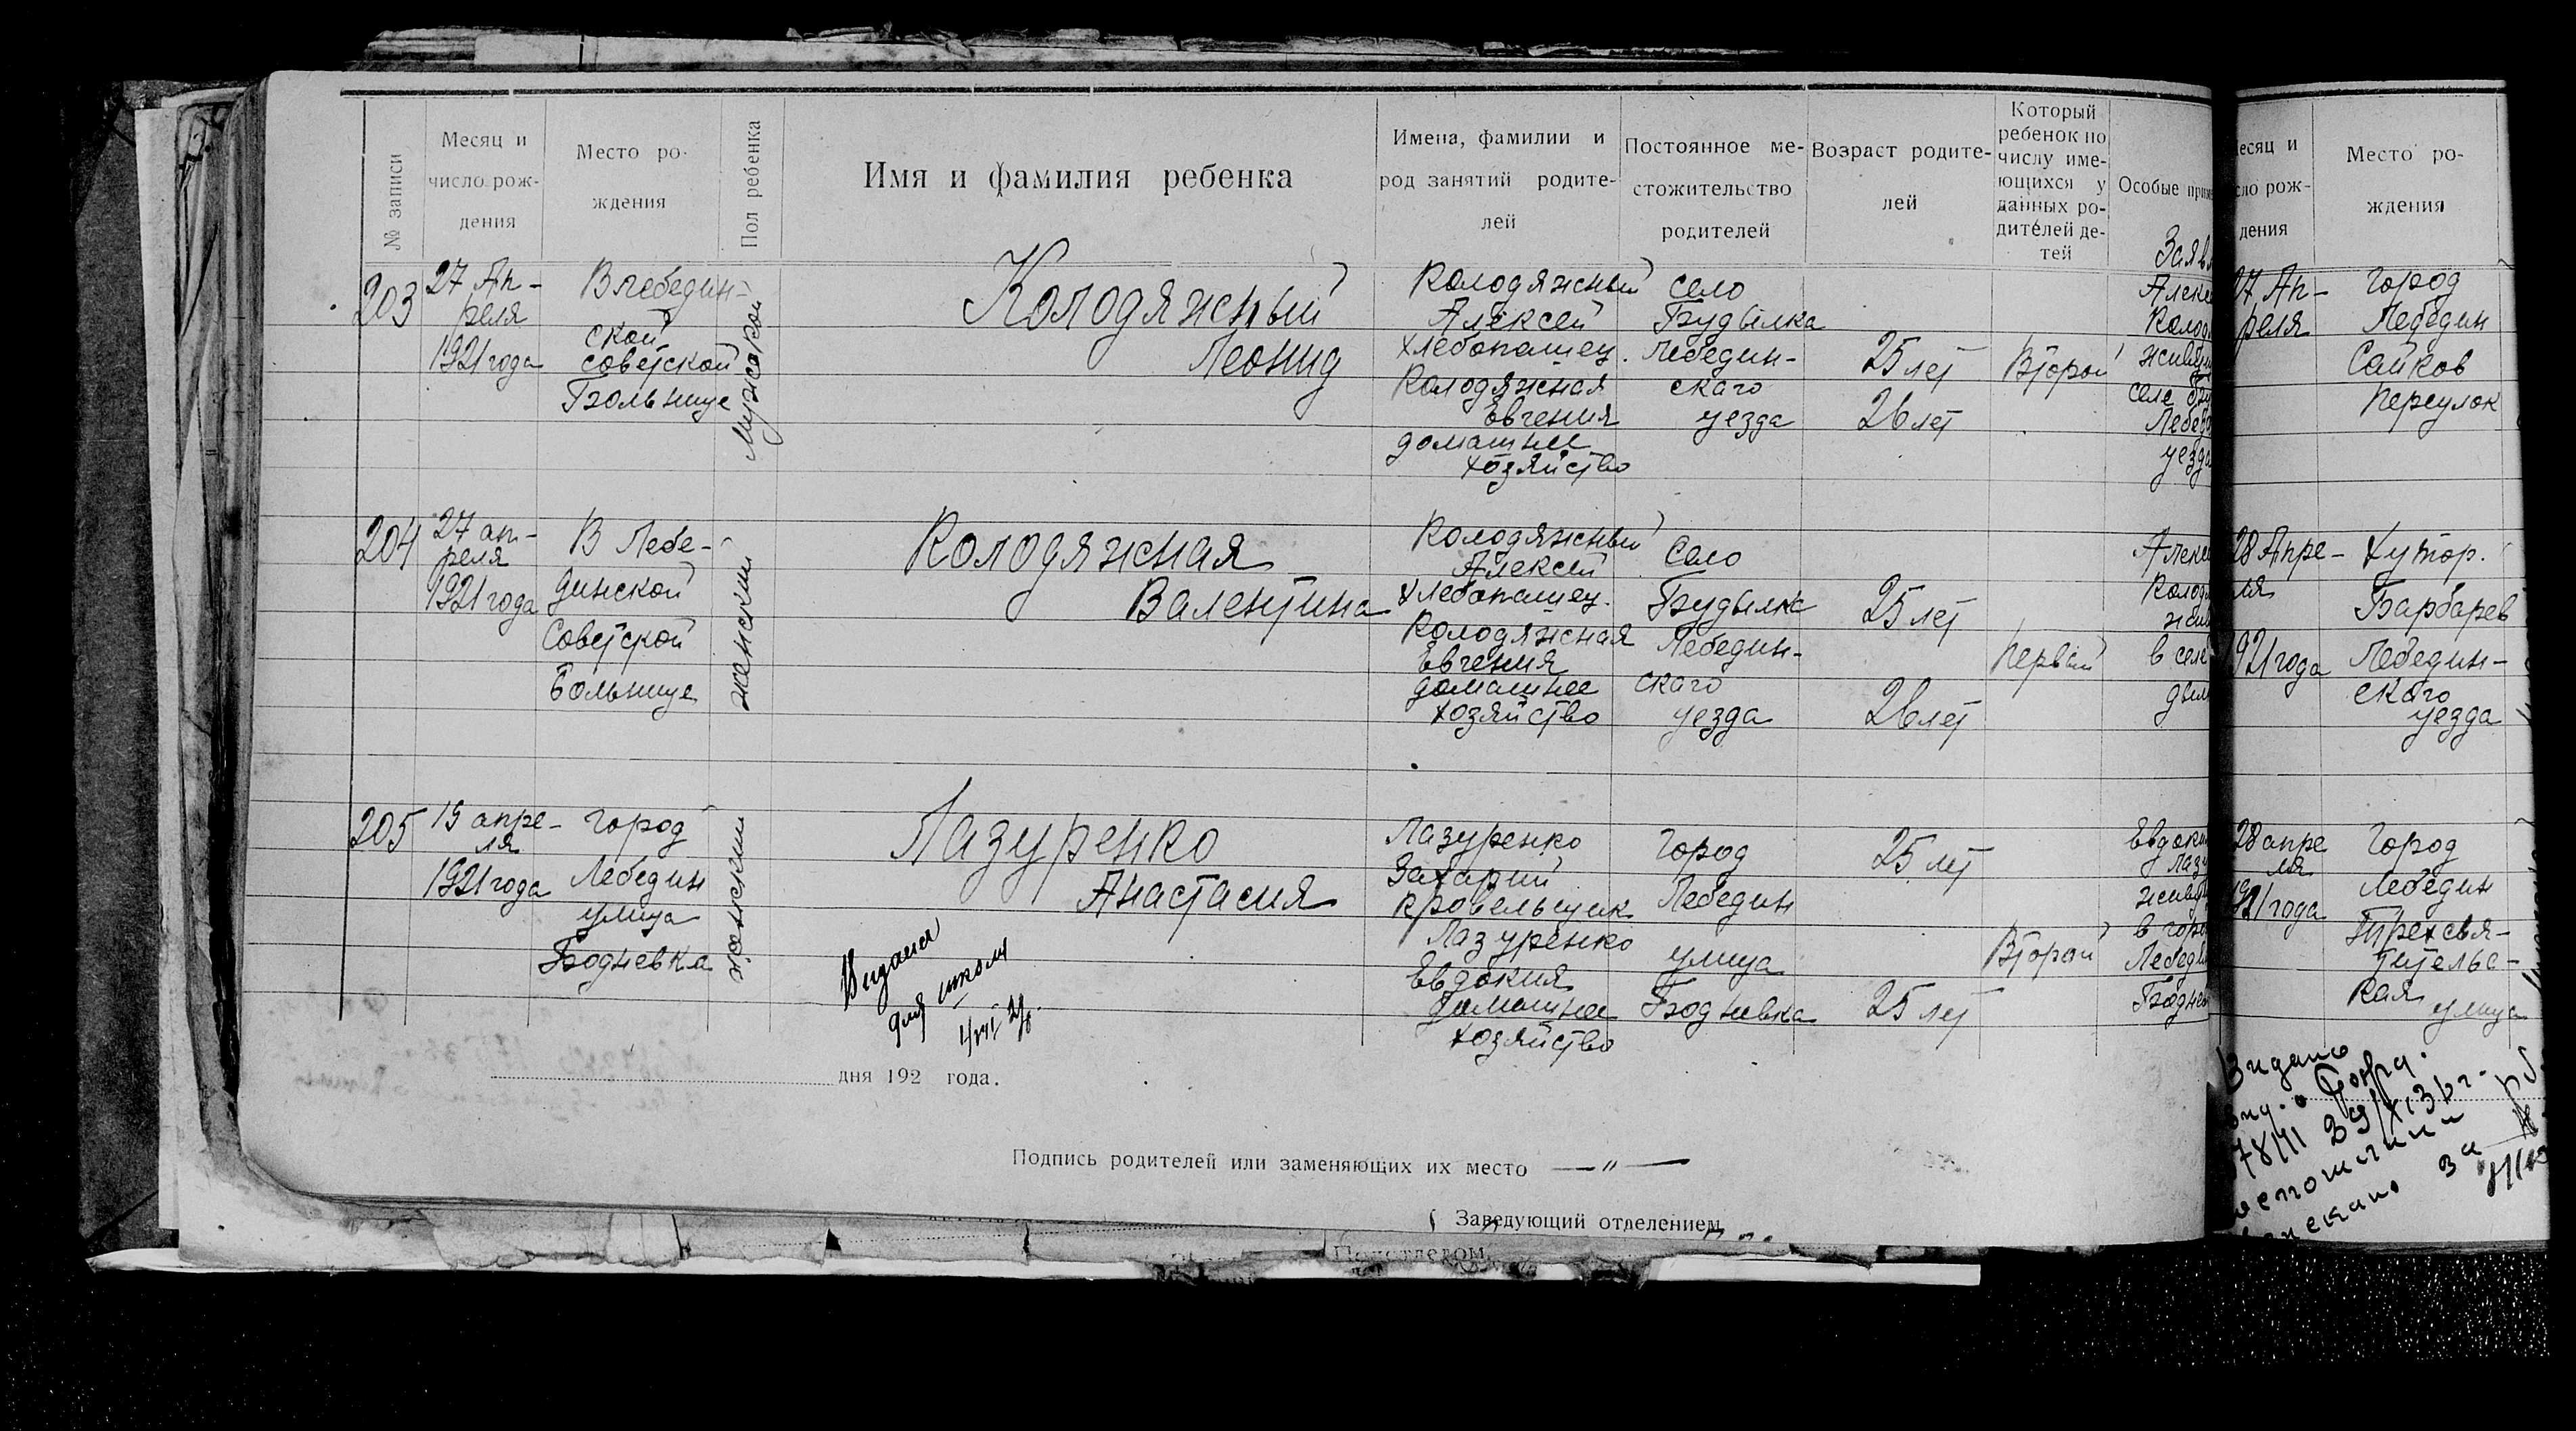 № записи
Месяц и
число рож-
дения
Место ро-
ждения
Пол ребенка
Имя и фамилия ребенка
Имена, фамилии и
род занятий родите-
лей
Постоянное ме-
стожительство
родителей
Возраст родите-
лей
Который
ребенок по
числу име-
ющихся у
данных ро-
дителей де-
тей
Особые
203
27 Ап-
реля
1921 года
В лебедин-
ской
советской
Больнице
Мужской
Колодяжный
Леонид
Колодяжный
Алексей
хлебопашец.
Колодяжная
Евгения
домашнее
хозяйство
село
Будылка
Лебедин-
скаго
уезда
25 лет
26 лет
Второй
204
27 ап-
реля
1921 года
В Лебе-
динской
Советской
Больнице
женский
Колодяжная
Валентина
Колодяжный
Алексей
хлебопашец.
Колодяжная
Евгения
домашнее
хозяйство
Село
Будылка
Лебедин-
скаго
уезда
25 лет
26 лет
Первый
в селе
205
19 апре-
ля
1921 года
город
Лебедин
улица
Бодневка
женский
Лазуренко
Анастасия
для школи
Лазуренко
Захарий
кровельщик
Лазуренко
Евдокия
домашнее
хозяйство
город
Лебедин
улица
Бодневка
25 лет
25 лет
Второй
дня 192 года.
Подпись родителей или заменяющих их место —〃—
Заведующий отделением
Подотделом
есяц и
сло рож-
дения
Место ро-
ждения
27 Ап-
реля
город
Лебедин
Сайков
Переулок
28 Апре-
ля
1921 года
хутор.
Барбарев
Лебедин-
скаго
уезда
28 апре
ля
1921 года
Город
Лебедин
Трехсвя-
тительс-
кая улица
Видано